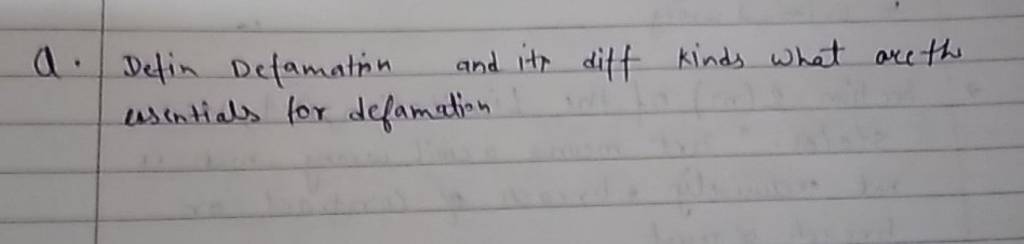 Q. Defin Defamation and its diff kinds what are the
essentials for defamation